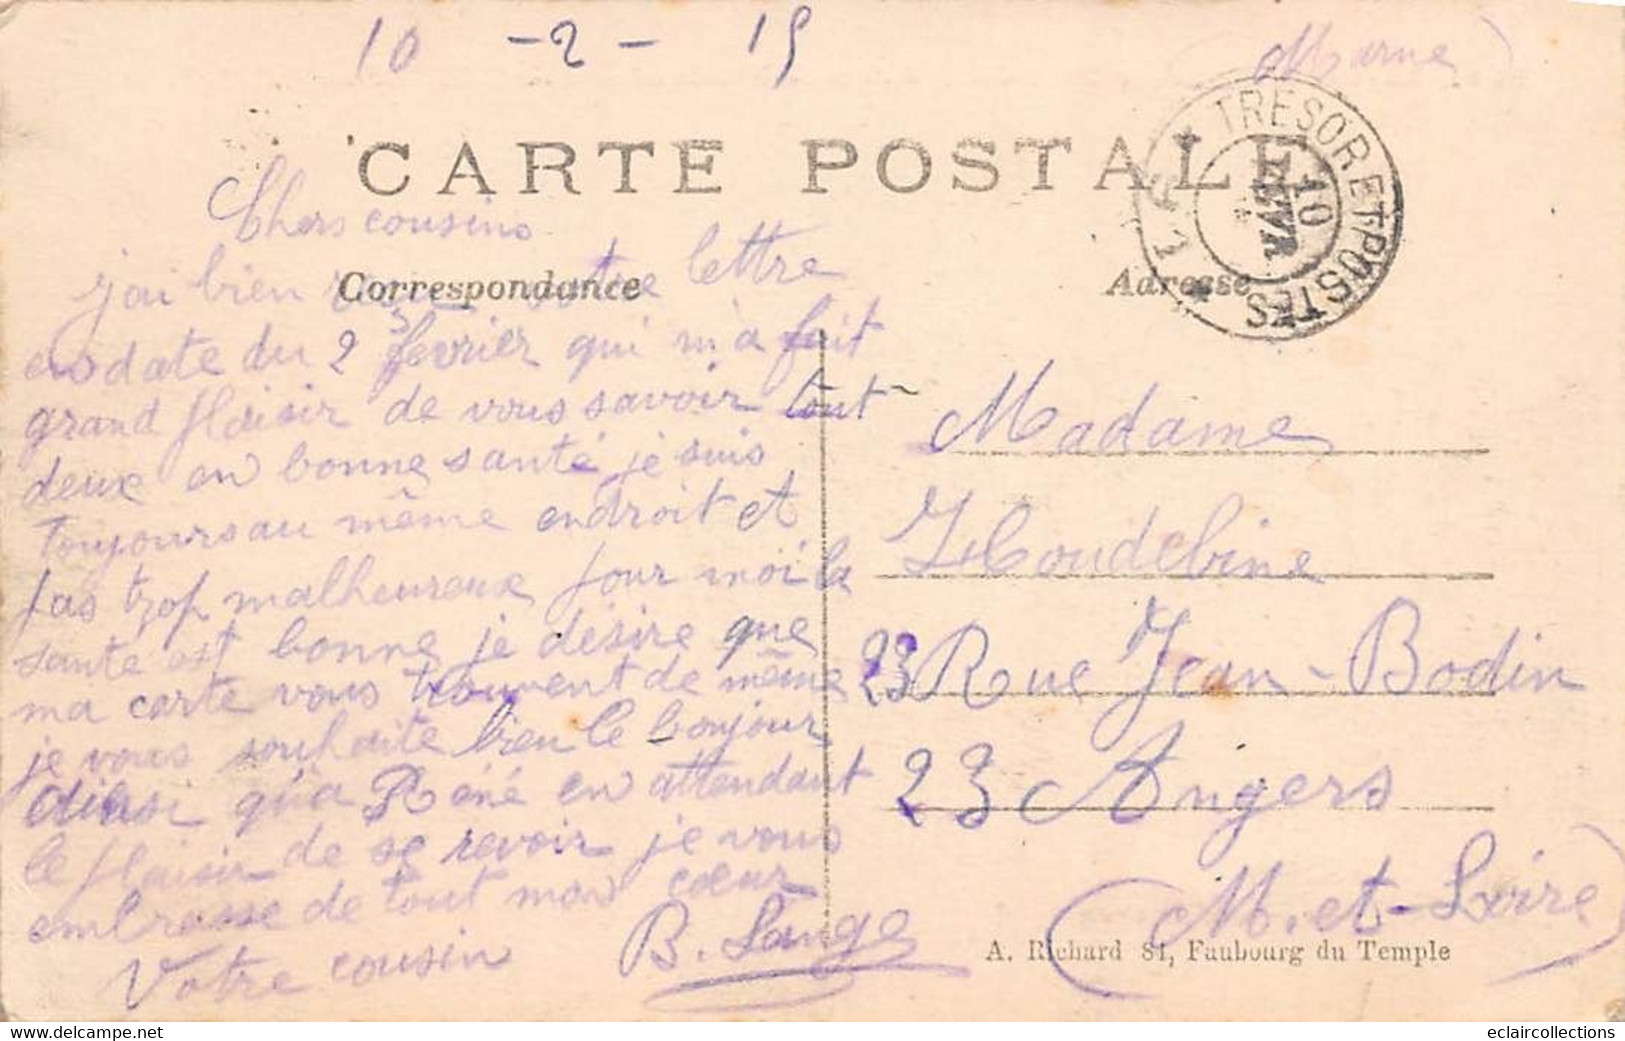 10 - 2 - 15
(Marne)
CARTE POSTALE
TRESOR ET POSTES
10
FEVR
Chers cousins
Correspondance
Adresse
j'ai bien reçu votre lettre
en date du 2 fevrier qui m'a fait
grand plaisir de vous savoir tout
deux en bonne santé je suis
toujours au même endroit et
pas trop malheureux pour moi la
santé est bonne je désire que
ma carte vous trouvent de même
je vous souhaite bien le bonjour
ainsi qu'a Réné en attendant
le plaisir de se revoir je vous
embrasse de tout mon cœur
Votre cousin B. Lange
Madame
Houdebine
23 Rue Jean-Bodin
23 Angers
(M.-et-Loire)
A. Richard 84, Faubourg du Temple
eclaircollections